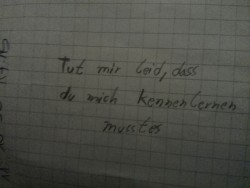 Tut mir leid, dass
du mich kennenlernen
musstes